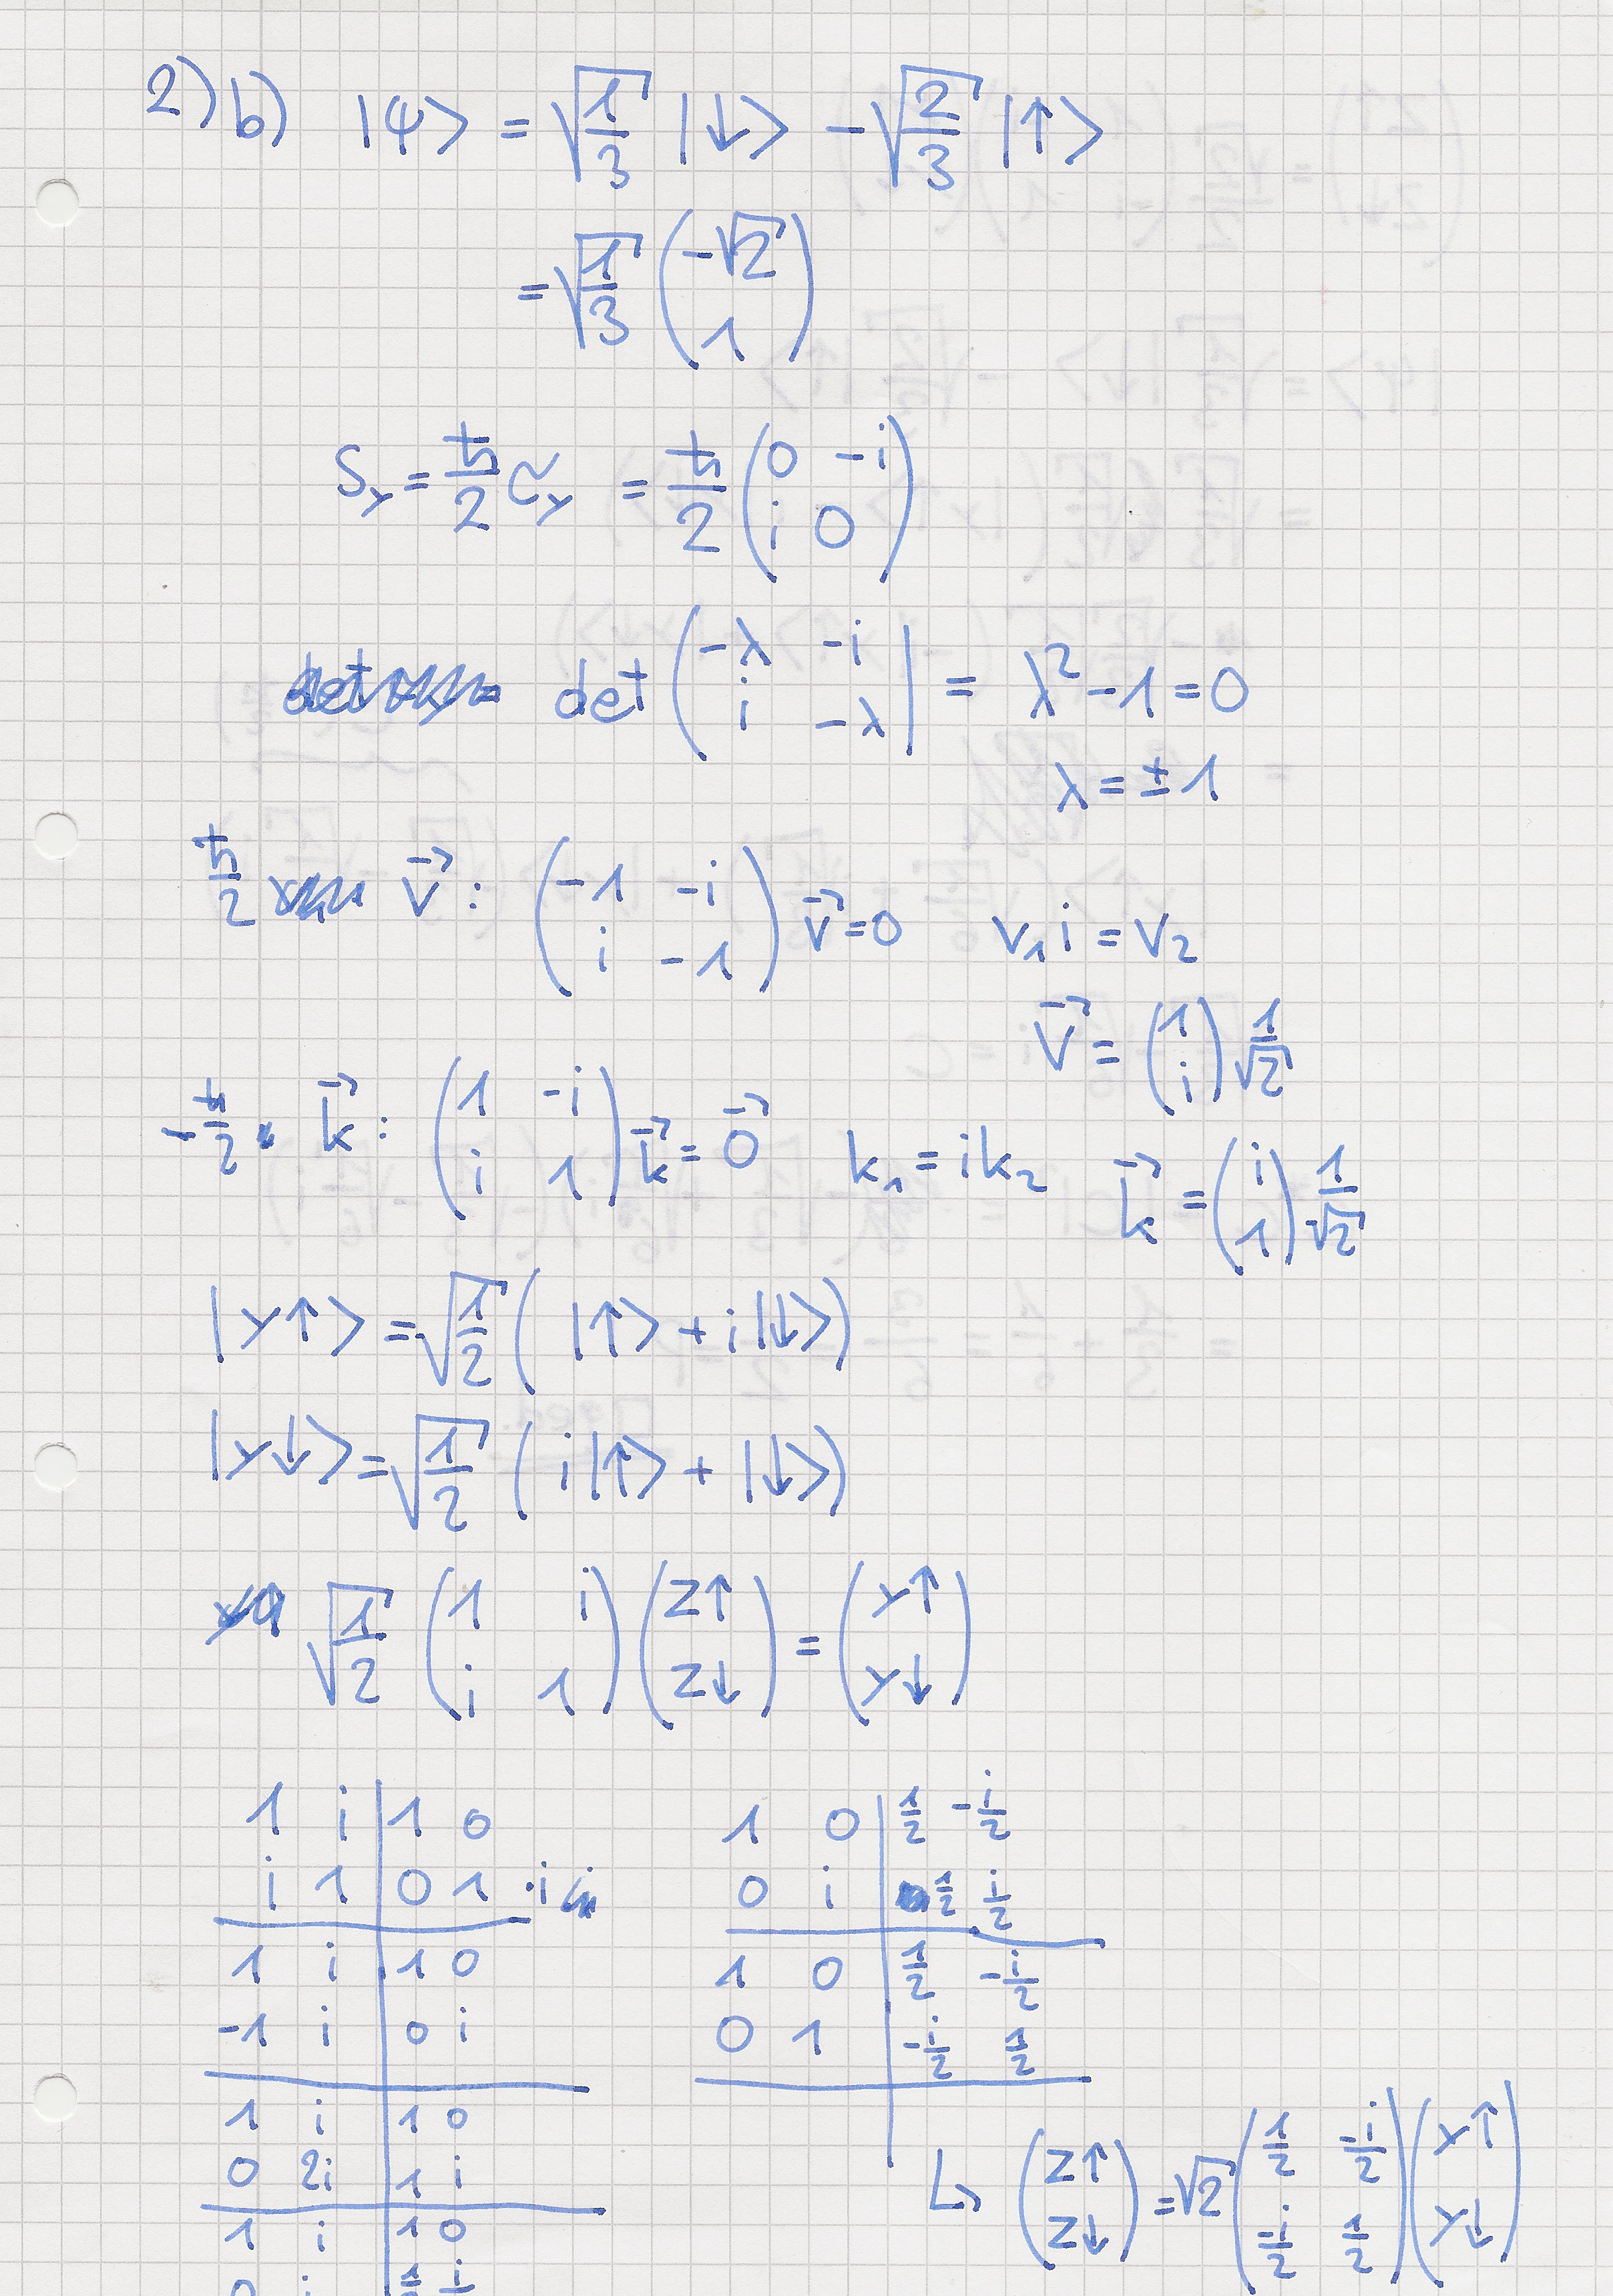 2) b) |ψ> = √(1/3) |↓> - √(2/3) |↑>
= √(1/3) (-√2 1)
S_y = ħ/2 σ_y = ħ/2 (0 -i i 0)
det (-λ -i i -λ| = λ² - 1 = 0
λ = ± 1
ħ/2 v⃗ : (-1 -i i -1) v⃗ = 0 v₁ i = v₂
v⃗ = (1 i) 1/√2
-ħ/2 k⃗ : (1 -i i 1) k⃗ = 0⃗ k₁ = i k₂ k⃗ = (i 1) 1/√2
|y↑> = √(1/2) ( |↑> + i |↓>)
|y↓> = √(1/2) ( i |↑> + |↓>)
√(1/2) (1 i i 1) (z↑ z↓) = (y↑ y↓)
1 i | 1 0
i 1 | 0 1 ·i
1 i | 1 0
-1 i | 0 i
1 i | 1 0
0 2i | 1 i
1 i | 1 0
0 i | 1/2 i/2
1 0 | 1/2 -i/2
0 i | 1/2 i/2
1 0 | 1/2 -i/2
0 1 | -i/2 1/2
↳ (z↑ z↓) = √2 (1/2 -i/2 -i/2 1/2) (y↑ y↓)